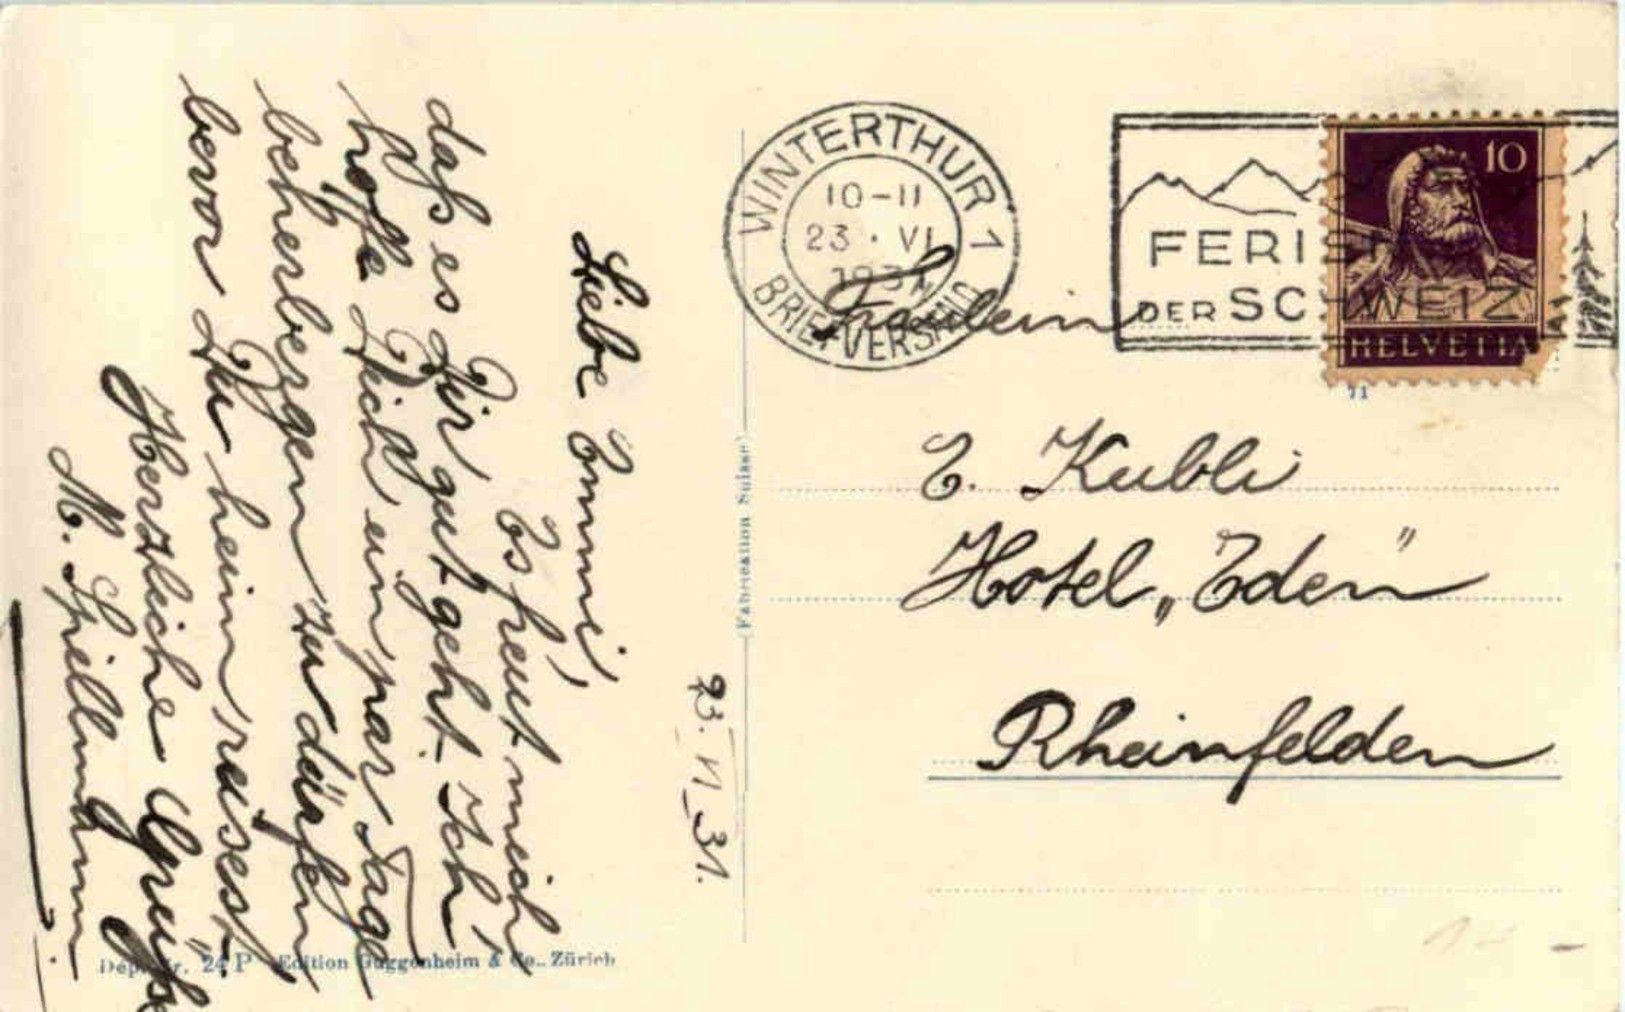 Liebe Emmi!
Es freut mich
dass es Dir gut geht. Ich
hoffe Dich ein par Tage
beherbergen zu dürfen
bevor Du heim reisest.
Herzliche Grüsse
M. Spillmann.
23. VI_31.
WINTERTHUR 1
10-11
23 · VI
1931
BRIEFVERSAND
DER SCHWEIZ
10
HELVETIA
71
Fräulein
E. Kubli
Hotel „Eden"
Rheinfelden
(Fabrication Suisse)
24 P Edition Guggenheim & Co., Zürich